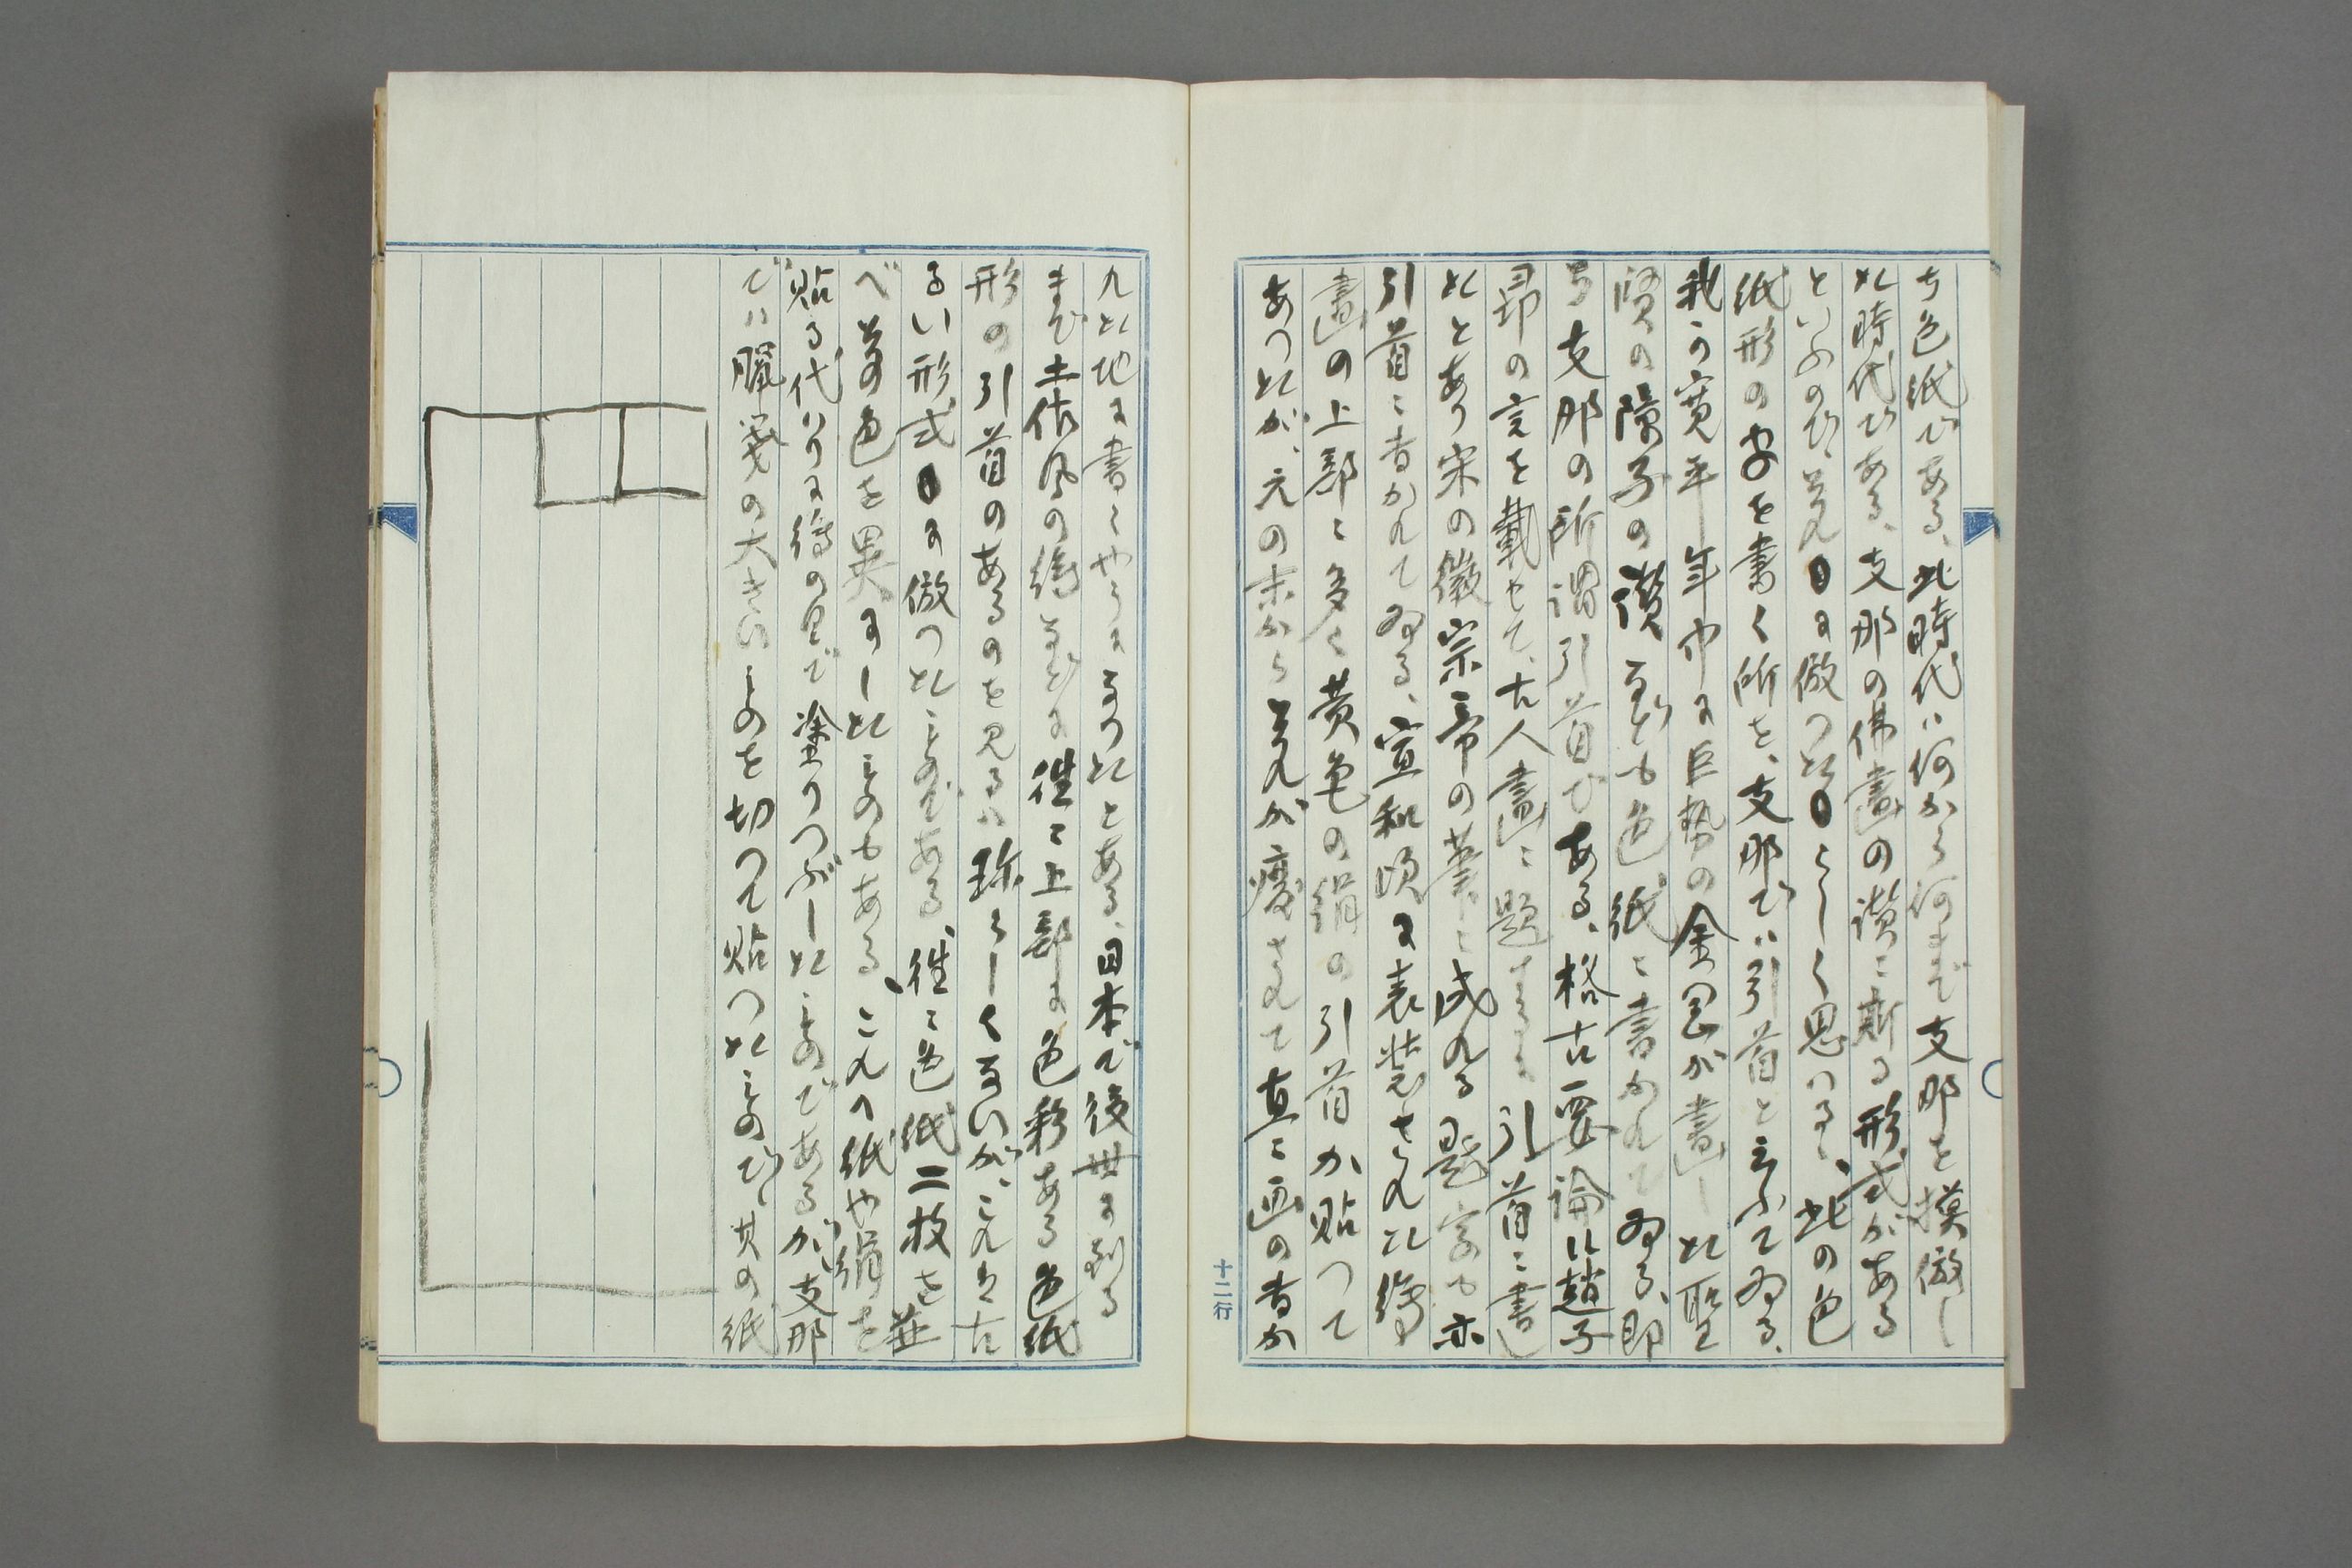 ち色紙である、此時代は何から何まで支那を摸倣し
た時代である、支那の佛畫の讃に斯る形式がある
といふので、それに倣つたらしく思はる、此の色
紙形の字を書く所を、支那では引首と云ふてゐる、
我が寛平年中に巨勢の金岡が畫した聖
賢の障子の讃なども色紙に書かれてゐる、即
ち支那の所謂引首である、格古要論に趙子
昂の言を載せて、古人畫に題する引首に書し
たとあり宋の徽宗帝の筆に成れる題字も亦
引首に書かれてゐる、宣和頃に表装された繪
畫の上部に多く黄色の絹の引首が貼つて
あつたが、元の末からそれが廢されて直に画の書か
れた地に書くやうになつたとある、日本で後世に到る
まで土佐風の繪などに往々上部に色彩ある色紙
形の引首のあるのを見るは珍らしくないが、これは古
るい形式に倣つたものである、往々色紙二枚を並
べ其の色を異にしたのもある、これへ紙や絹を
貼る代はりに繪の具で塗りつぶしたものであるが、支那
では臘箋の大きいものを切つて貼つたもので、其の紙
十二行